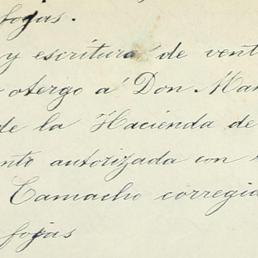 fojas.
y escritura de vent
otergo á Don Man
de la Hacienda de
autorizada con
Camacho corregid
fojas